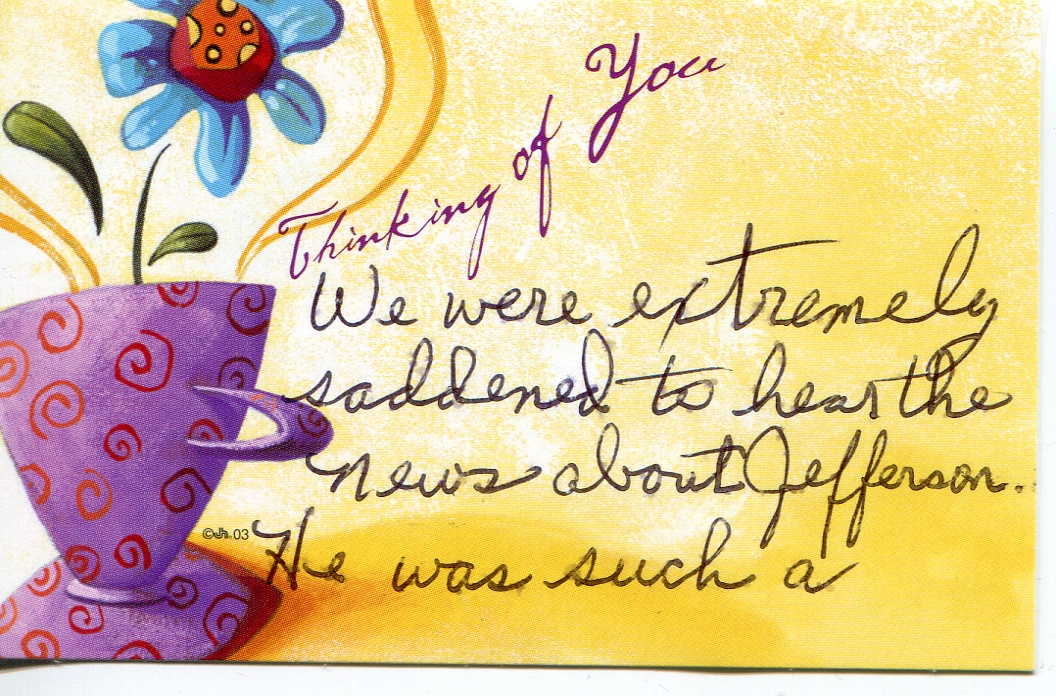 Thinking of You
We were extremely
saddened to hear the
news about Jefferson.
©Jh. 03
He was such a